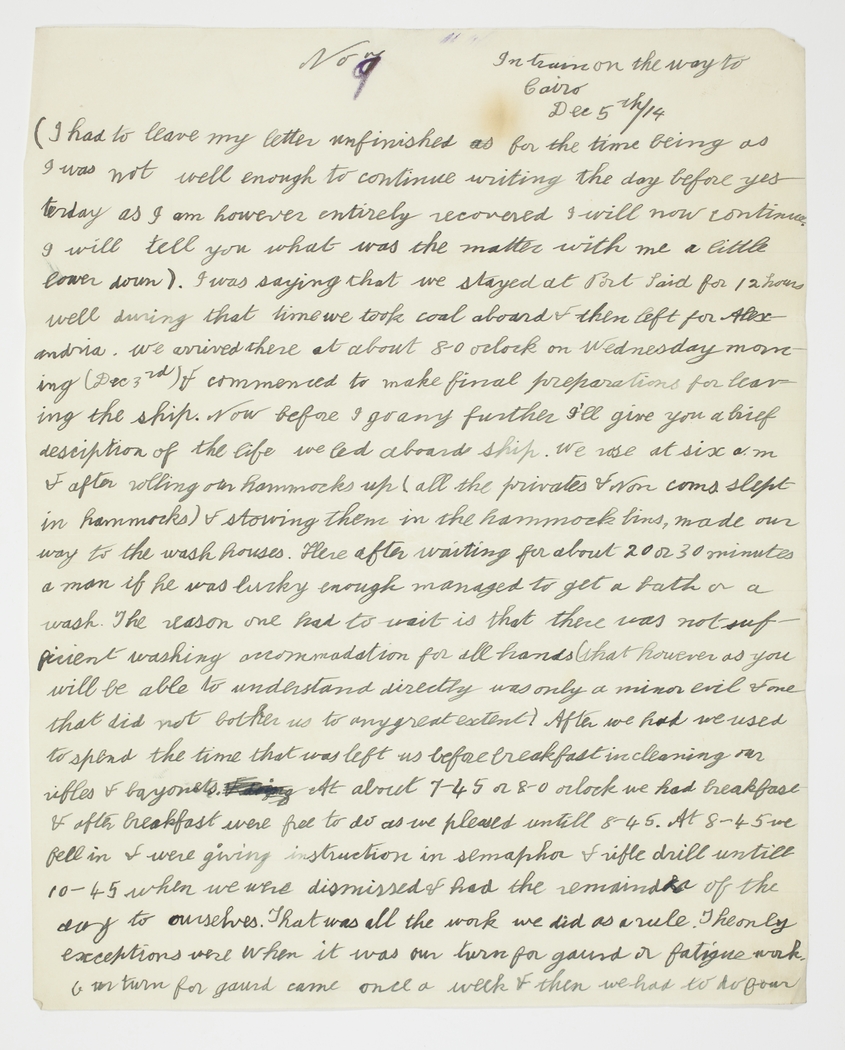 No 9
In train on the way to
Cairo
Dec 5th/14
(I had to leave my letter unfinished as for the time being as
I was not well enough to continue writing the day before yes-
terday as I am however entirely recovered I will now continue.
I will tell you what was the matter with me a little
lower down). I was saying that we stayed at Port Said for 12 hours
well during that time we took coal aboard & then left for Alex-
andria. We arrived there at about 8-0 oclock on Wednesday morn-
ing (Dec 3rd) & commenced to make final preparations for leav-
ing the ship. Now before I go any further I'll give you a brief
desciption of the life we led aboard ship. We rose at six a.m
& after rolling our hammocks up (all the privates & Non coms slept
in hammocks) & stowing them in the hammock bins, made our
way to the wash houses. Here after waiting for about 20 or 30 minutes
a man if he was lucky enough managed to get a bath or a
wash. The reason one had to wait is that there was not suf-
ficient washing accommodation for all hands (that however as you
will be able to understand directly was only a minor evil & one
that did not bother us to any great extent) After we had we used
to spend the time that was left us before breakfast in cleaning our
rifles & bayonets. At about 7-45 or 8-0 oclock we had breakfast
& after breakfast were free to do as we pleased untill 8-45. At 8-45 we
fell in & were giving instruction in semaphor & rifle drill untill
10-45 when we were dismissed & had the remainder of the
day to ourselves. That was all the work we did as a rule. The only
exceptions were when it was our turn for gaurd or fatigue work.
Our turn for gaurd came once a week & then we had to do four